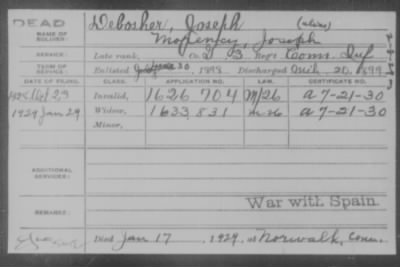 DEAD
Debosher, Joseph (alias)
NAME OF SOLDIER:
Joseph
SERVICE:
Late rank, Co. 3 Reg't Conn. Inf
TERM OF SERVICE:
Enlisted 1898 Discharged Mch. 20, 1899
DATE OF FILING. CLASS. APPLICATION NO. LAW. CERTIFICATE NO.
23 Invalid, 1626 704 M/26 a 7-21-30
1929 Jan 29 Widow, 1633 831 m-26 a 7-21-30
Minor,
ADDITIONAL SERVICES:
War with Spain.
REMARKS:
Died Jan 17, 1929, at Norwalk, Conn.